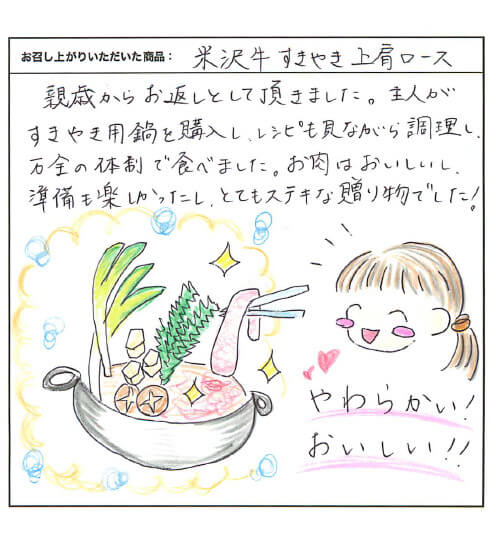 お召し上がりいただいた商品： 米沢牛 すきやき 上肩ロース
親戚からお返しとして頂きました。主人が
すきやき用鍋を購入し、レシピも見ながら調理し、
万全の体制で食べました。お肉はおいしいし、
準備も楽しかったし、とてもステキな贈り物でした！
やわらかい！
おいしい！！